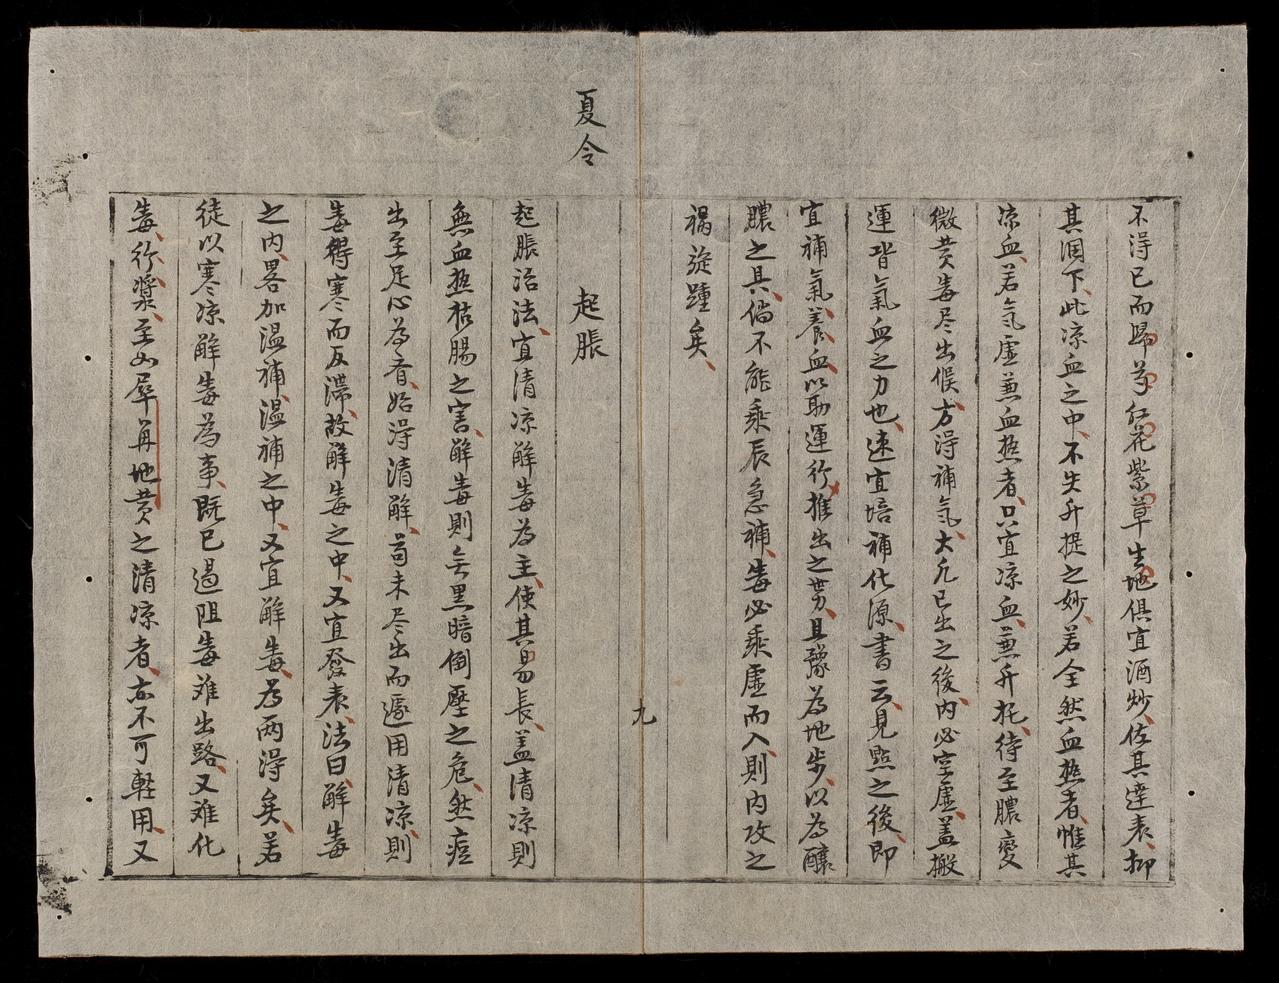 不淂已而歸芎紅花紫草生地俱宜酒炒佐其達表抑
其潤下此凉血之中不失升提之妙若全然血热者惟其
凉血若氣虛兼血热者只宜凉血兼升托待至膿变
微黄毒尽出候方淂補氣大凢已出之後内必空虛盖搬
運皆氣血之力也速宜培補化源書云見點之後即
宜補氣養血以助運行推出之势且豫為地步以為釀
膿之具倘不能乘辰急補毒必乘虛而入則内攻之
禍旋踵矣
九
夏令
起脹
起脹治法宜清凉解毒為主使其易長盖清凉則
無血热枯腸之害解毒則无黑暗倒壓之危然痘
出至足心為斉始淂清解苟未尽出而遽用清凉則
毒得寒而反滞故解毒之中又宜發表法曰解毒
之内畧加温補温補之中又宜解毒為两淂矣若
徒以寒凉解毒為事既已遏阻毒难出路又难化
毒行漿至如犀角地黄之清凉者亦不可軽用又